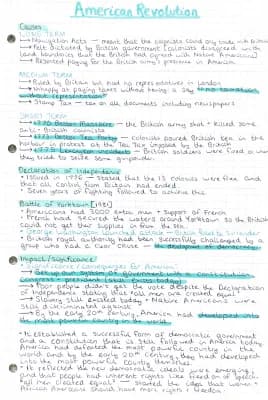 American Revolution
Causes
LONG TERM
→ Navigation Acts - meant that the colonists could only trade with Britain
→ Felt distrusted by British government (colonists disagreed with
land boundaries that the British had agreed with Native Americans)
→ Resented paying for the British army's presence in America
MEDIUM TERM
→ Ruled by Britain but had no representatives in London
→ Unhappy at paying taxes without having a say "no taxation
without representation"
→ Stamp Tax - tax on all documents including newspapers
SHORT TERM
→ 1770 Boston Massacre - the British army shot + killed some
anti-British colonists
→ 1773 Boston Tea Party - colonists poured British tea in the
harbour in protest at the Tea Tax imposed by the British
→ 1775 Lexington incidents - British soldiers were fired at when
they tried to seize some gunpowder
Declaration of Independence
→ Issued in 1776 - stated that the 13 colonies were free and
that all control from Britain had ended
→ Seven years of fighting followed to achieve this
Battle of Yorktown [1781]
→ Americans had 3,000 extra men + support of French
→ French had secured the waters around Yorktown so the British
could not get their supplies in from the sea
→ George Washington launched attack - British forced to surrender
→ British royal authority had been successfully challenged by a
group who had a clear cause - the development of democracy
Impact/significance
→ Significance / consequences for America:
→ Set up own system of government with a constitution
+ elected president (still exists today)
→ Poor people didn't get the vote despite the Declaration
of Independence stating that all men are created equal
→ Slavery still existed today + Native Americans were
still discriminated against
→ By the early 20th century, America had developed into
the most powerful country in the world
→ It established a successful form of democratic government
and a constitution that is still followed in America today
America had defeated the most powerful country in the
world and by the early 20th century they had developed
into the most powerful country themselves
→ It reflected the new democratic ideals were emerging
and that people had inherent rights like freedom of speech.
"All men created equal" - started the idea that women +
African Americans should have more rights + freedom